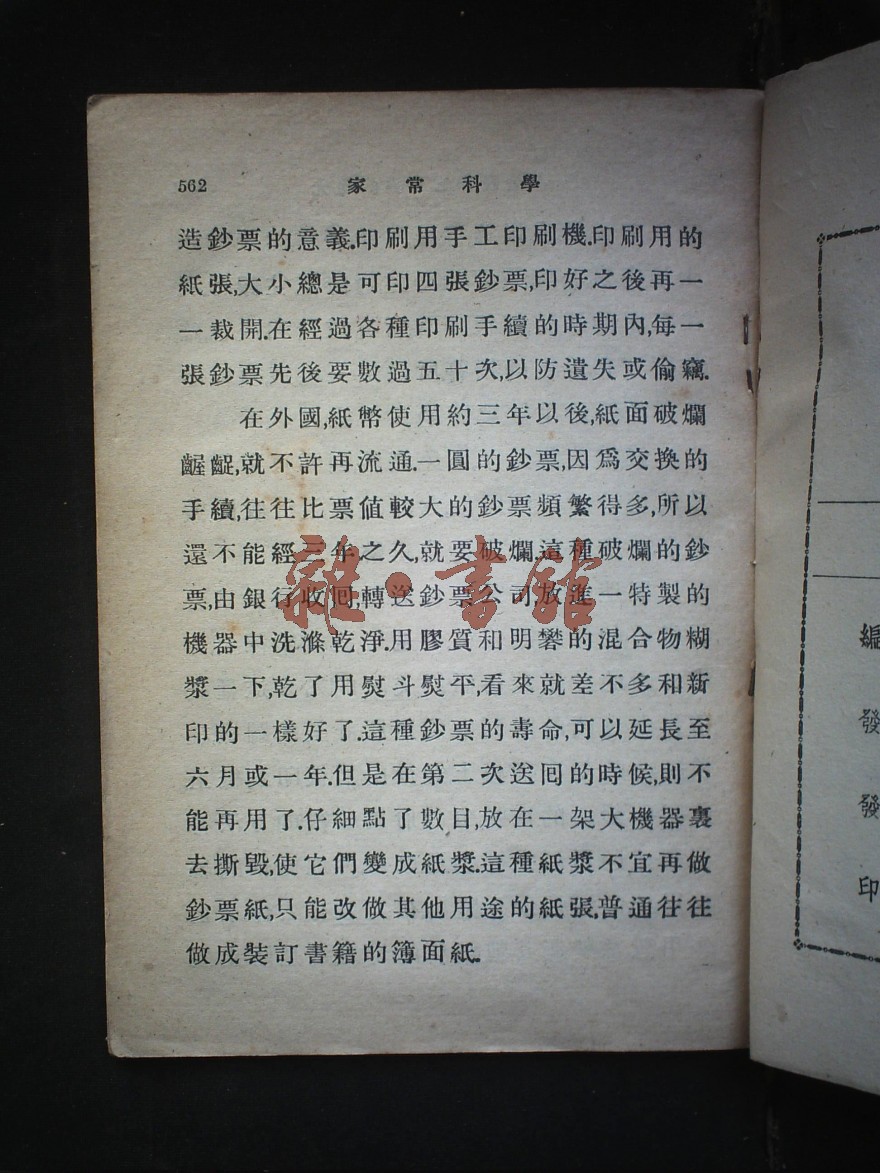 562 家常科學
造鈔票的意義.印刷用手工印刷機.印刷用的
紙張,大小總是可印四張鈔票,印好之後再一
一裁開.在經過各種印刷手續的時期內,每一
張鈔票先後要數過五十次,以防遺失或偷竊.
在外國,紙幣使用約三年以後,紙面破爛
齷齪,就不許再流通.一圓的鈔票,因爲交換的
手續,往往比票值較大的鈔票頻繁得多,所以
還不能經三年之久,就要破爛.這種破爛的鈔
票,由銀行收囘,轉送鈔票公司,放進一特製的
機器中洗滌乾淨.用膠質和明礬的混合物糊
漿一下,乾了用熨斗熨平,看來就差不多和新
印的一樣好了.這種鈔票的壽命,可以延長至
六月或一年.但是在第二次送囘的時候,則不
能再用了.仔細點了數目,放在一架大機器裏
去撕毀,使它們變成紙漿.這種紙漿不宜再做
鈔票紙,只能改做其他用途的紙張.普通往往
做成裝訂書籍的簿面紙.
雜·書館
編
發
發
印